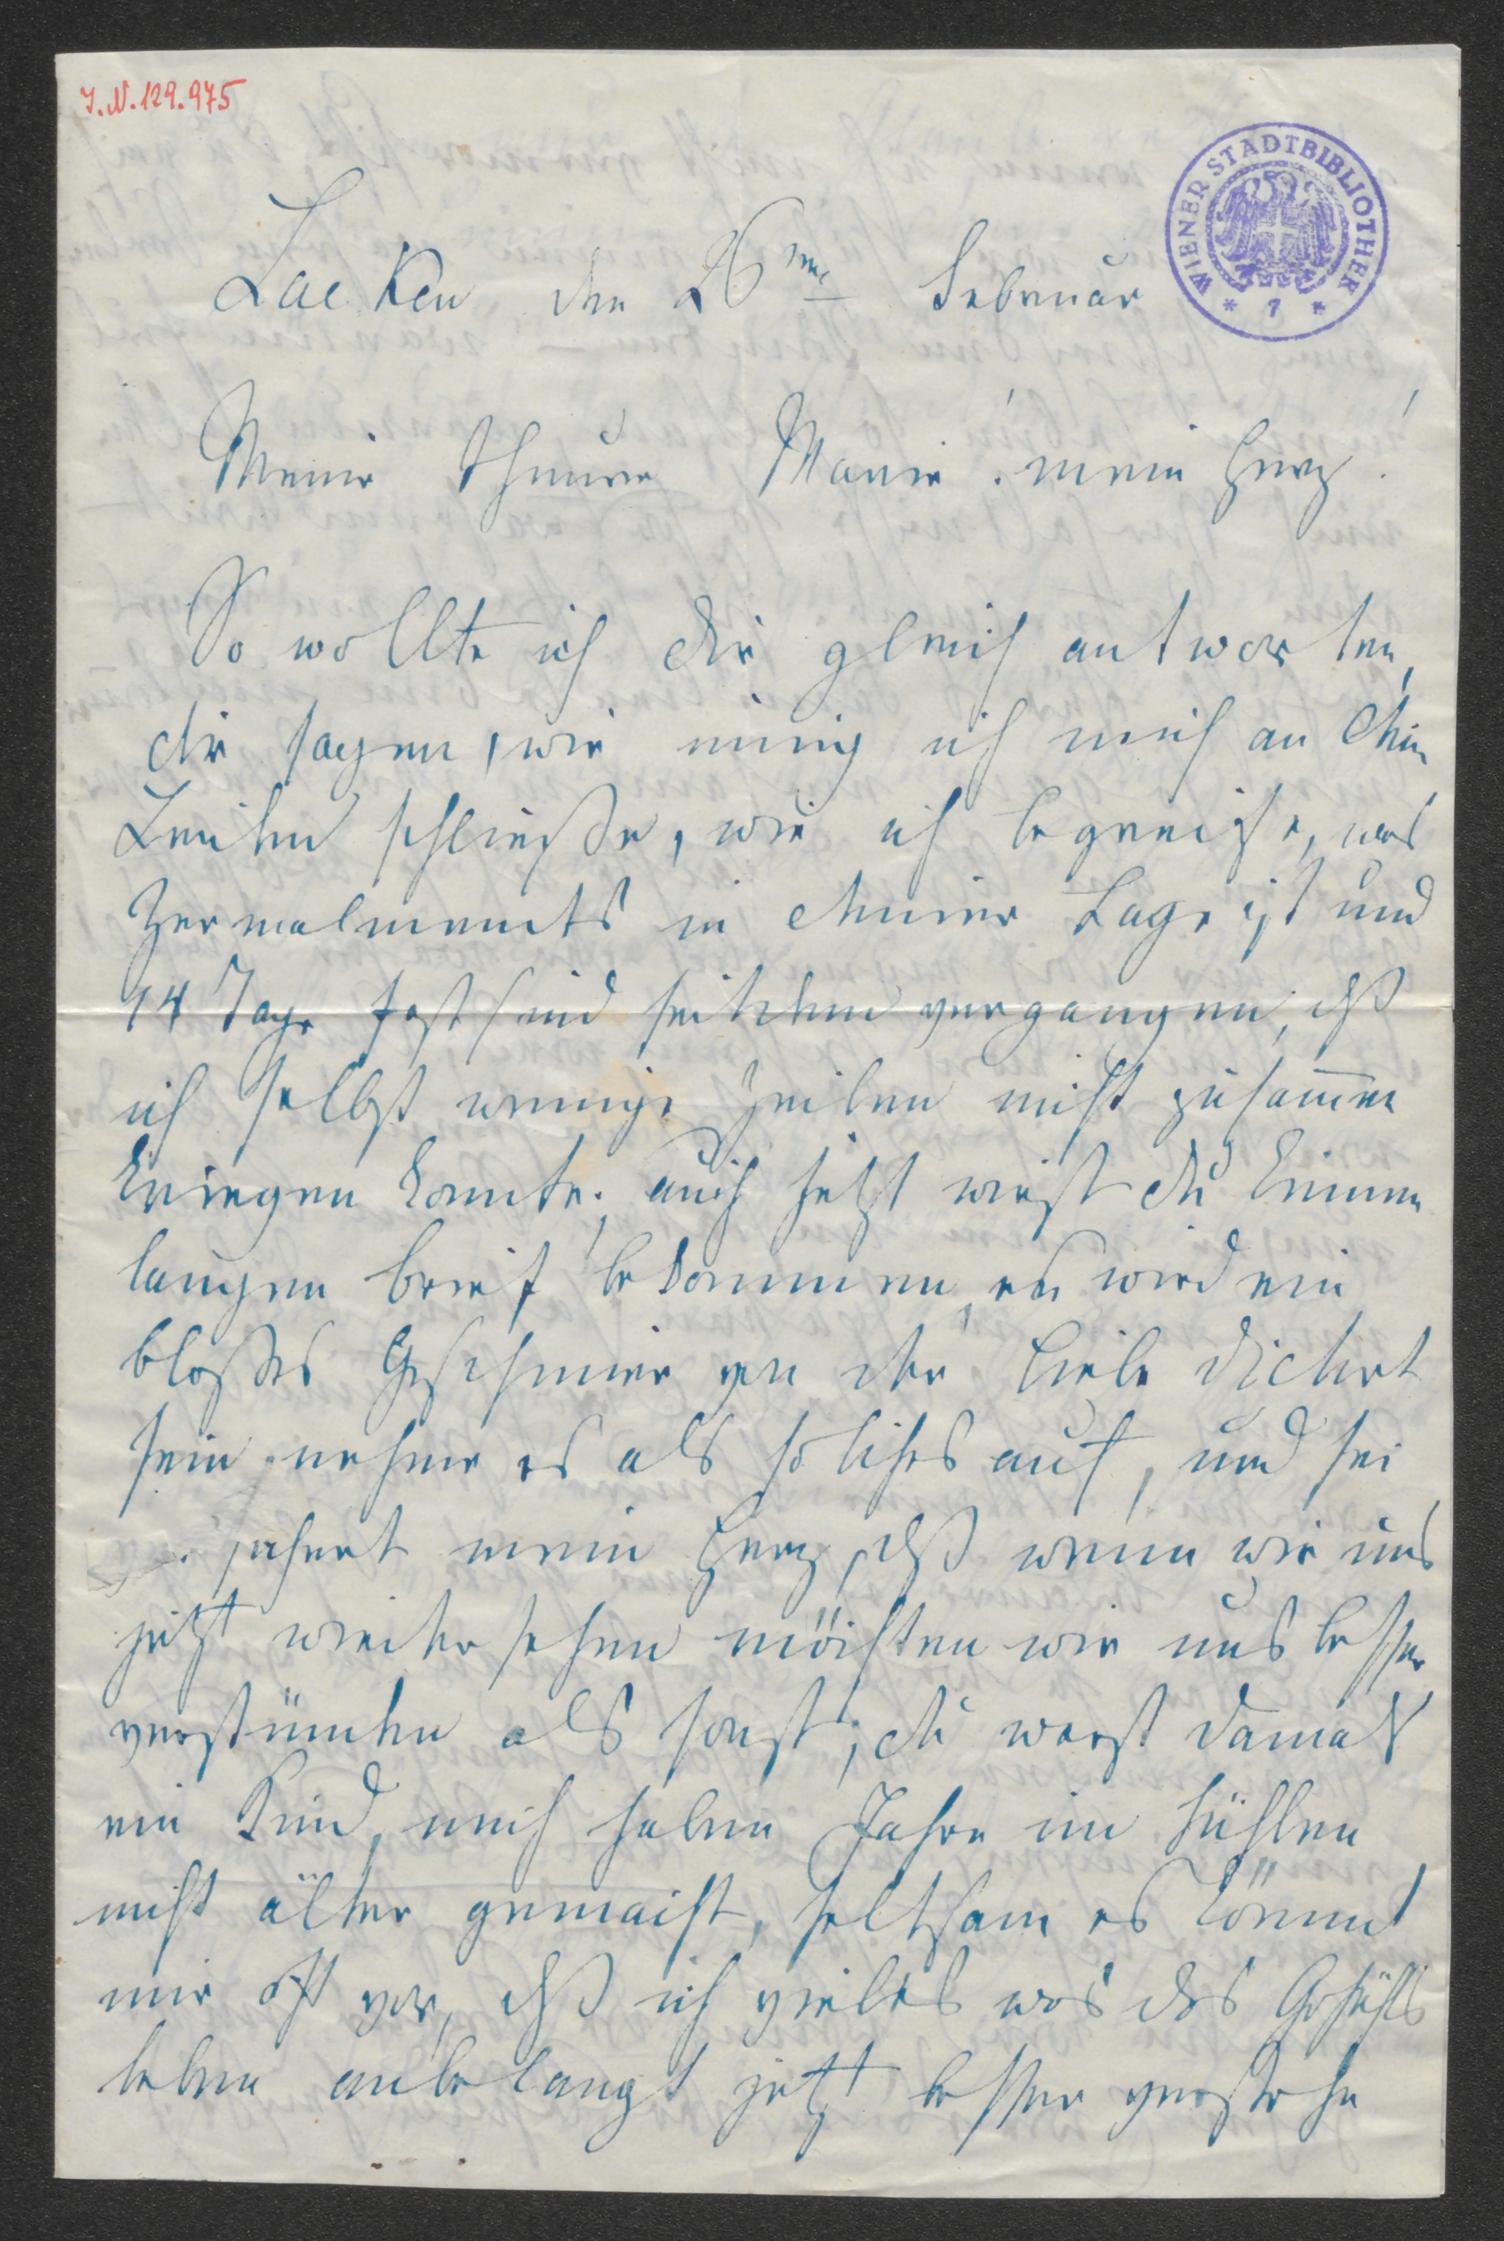 I.N. 129.975
WIENER STADTBIBLIOTHEK
* 7 *
Laeken den 26me Februar
Meine theure Marie! mein Herz!
So wollte ich dir gleich antworten,
dir sagen, wie innig ich mich an dein
Leiden schließe, wie ich begreife, was
Zermalmendes in deiner Lage ist und
14 Tage fast sind seitdem vergangen, dß
ich selbst wenige Zeilen nicht zusammen
kriegen konnte; auch jetzt wirst du keinen
langen brief bekommen, es wird ein
bloßes Geschmier von der Liebe dictirt
sein nehme es als solches auf, und sei
mein Herz, dß wenn wir uns
jetzt wiedersehen möchten wir uns besser
verstünden als sonst; du warst damals
ein Kind, mich haben Jahre im fühlen
nicht älter gemacht, seltsam es kömmt
mir oft vor, dß ich vieles was das Gefühls
leben anbelangt jetzt besser verstehe